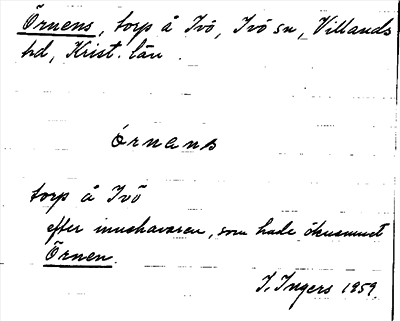 Örnens, torp å Ivö, Ivö sn, Villands
hd, Krist. län.
órnans
torp å Ivö
efter innehavaren, som hade öknamnet
Örnen.
I. Ingers 1959